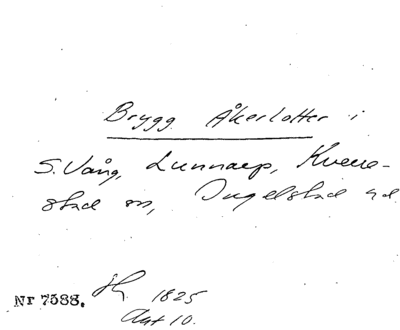 Brygg Åkerlotter i
S. Vång, Lunnarp, Kverre-
stad sn, Ingelstad hd.
Nr 7588. Sk. 1825
Akt 10.